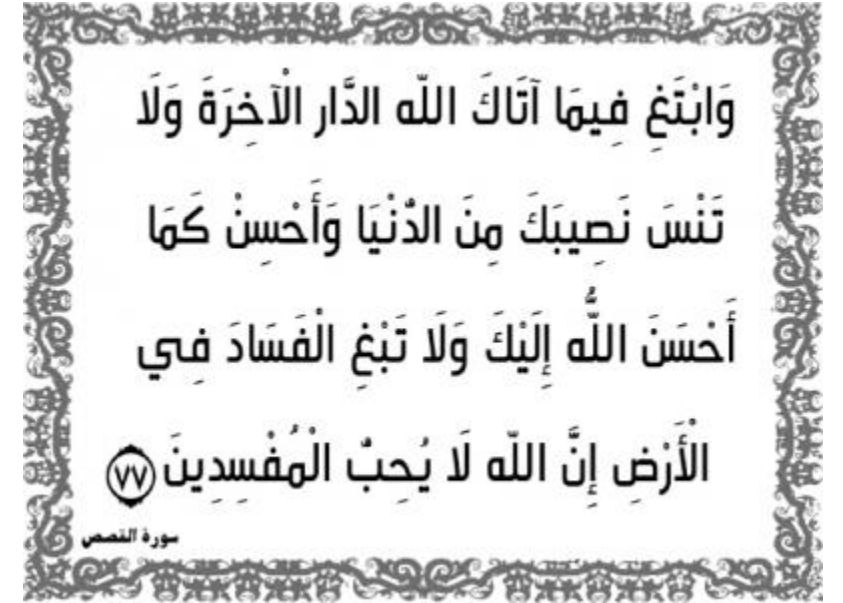 وَابْتَغِ فِيمَا آتَاكَ اللّه الدَّار الْآخِرَةَ وَلَا
تَنْسَ نَصِيبَكَ مِنَ الدُّنْيَا وَأَحْسِنْ كَمَا
أَحْسَنَ اللُّه إِلَيْكَ وَلَا تَبْغِ الْفَسَادَ فِي
الْأَرْضِ إِنَّ اللّه لَا يُحِبُّ الْمُفْسِدِينَ ٧٧
سورة القصص